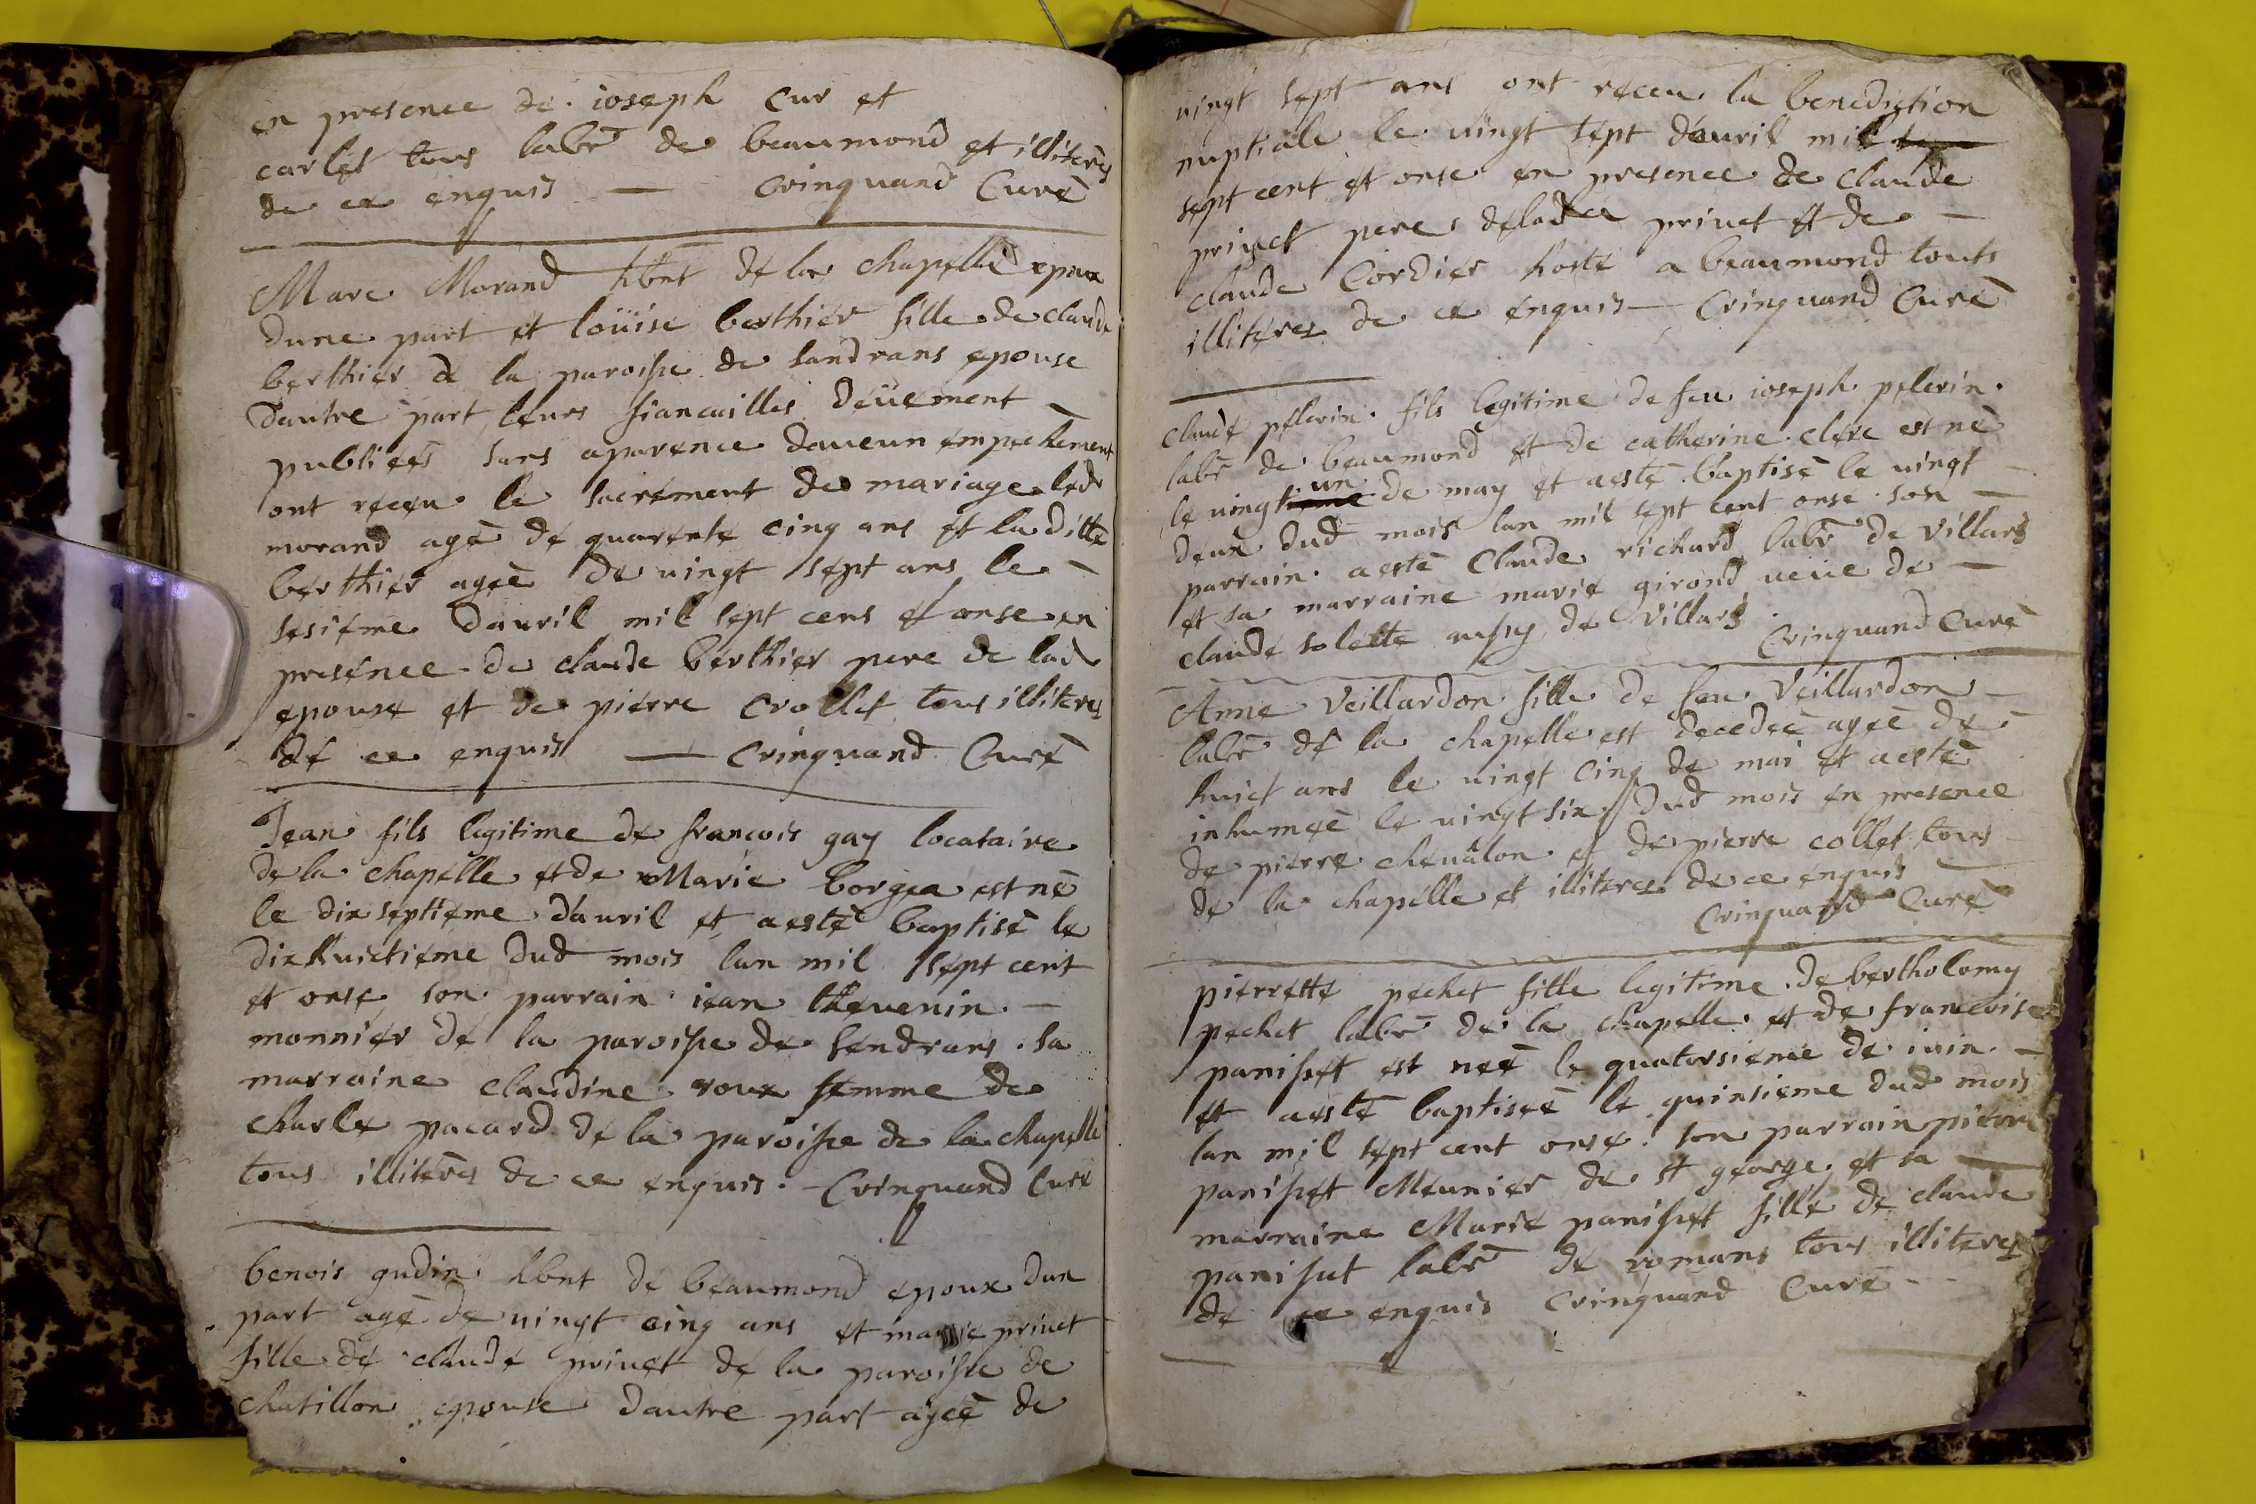 en presence de ioseph Cur et
carles tous labr de beaumond et illiteres
de ce enquis — Crinquand Curé
Marc Morand hbnt de la chapelle epoux
dune part et loüise berthier fille de claude
berthier de la paroisse de sandrans epouse
dautre part leurs fiancailles deüement
publieés sans aparence daucun empechement
ont receu le sacrement de mariage led
morand agé de quarente cinq ans et la ditte
berthier ageé de uingt sept ans le –
sesiéme dauril mil sept cens et onse en
presence de claude berthier pere de lad
epouse et de pierre Crollet tous illiteres
de ce enquis — Crinquand Curé
Jean fils legitime de francois gay locataire
de la chapelle et de Marie borgea est né
le dix septiéme dauril et aesté baptisé le
dixhuictiéme dud mois lan mil sept cent
et onse son parrain iean theuenin –
monnier de la paroisse de sendrans sa
marraine claudine roux femme de
charle pacard de la paroisse de la chapelle
tous illiteres de ce enquis. – Crinquand Curé
benois gudin hbnt de beaumond epoux dun
part agé de uingt cinq ans et marie priuet
fille de claude priuet de la paroisse de
chatillon epouse dautre part ageé de
uingt sept ans ont receu la benediction
nuptiale le uingt sept dauril mil
sept cent et onse en presence de claude
priuet pere de lad priuet et de –
claude Cordier hoste a beaumond touts
illiteres de ce enquis — Crinquand Curé
claude pelerin fils legitime de feu ioseph pelerin
labr de beaumond et de catherine clere est né
un
le uingt de may et aesté baptisé le uingt –
deux dud mois lan mil sept cent onse son –
parrain aesté Claude richard labr de villars
et sa marraine marie girond ueüe de –
claude solette aussy de Villars
Crinquand Curé
Anne Veillardon fille de feu Veillardon –
labr de la chapelle est decedeé ageé de –
huict ans le uingt cinq de mai et aesté
inhumeé le uingt six dud mois en presence
de pierre cheualon et de pierre collet tous
de la chapelle et illiteres de ce enquis –
Crinquand Curé
pierrette pechet fille legitime de bertholomy
pechet labr de la chapelle et de francoise
panisset est neé le quatorsieme de iuin –
et aesté baptiseé le quinsieme dud mois
lan mil sept cent onse son parrain pierre
panisset Meunier de st george et sa —
marraine Marie panisset fille de claude
panisset labr de romans tous illiteres
de ce enquis Crinquand Curé –